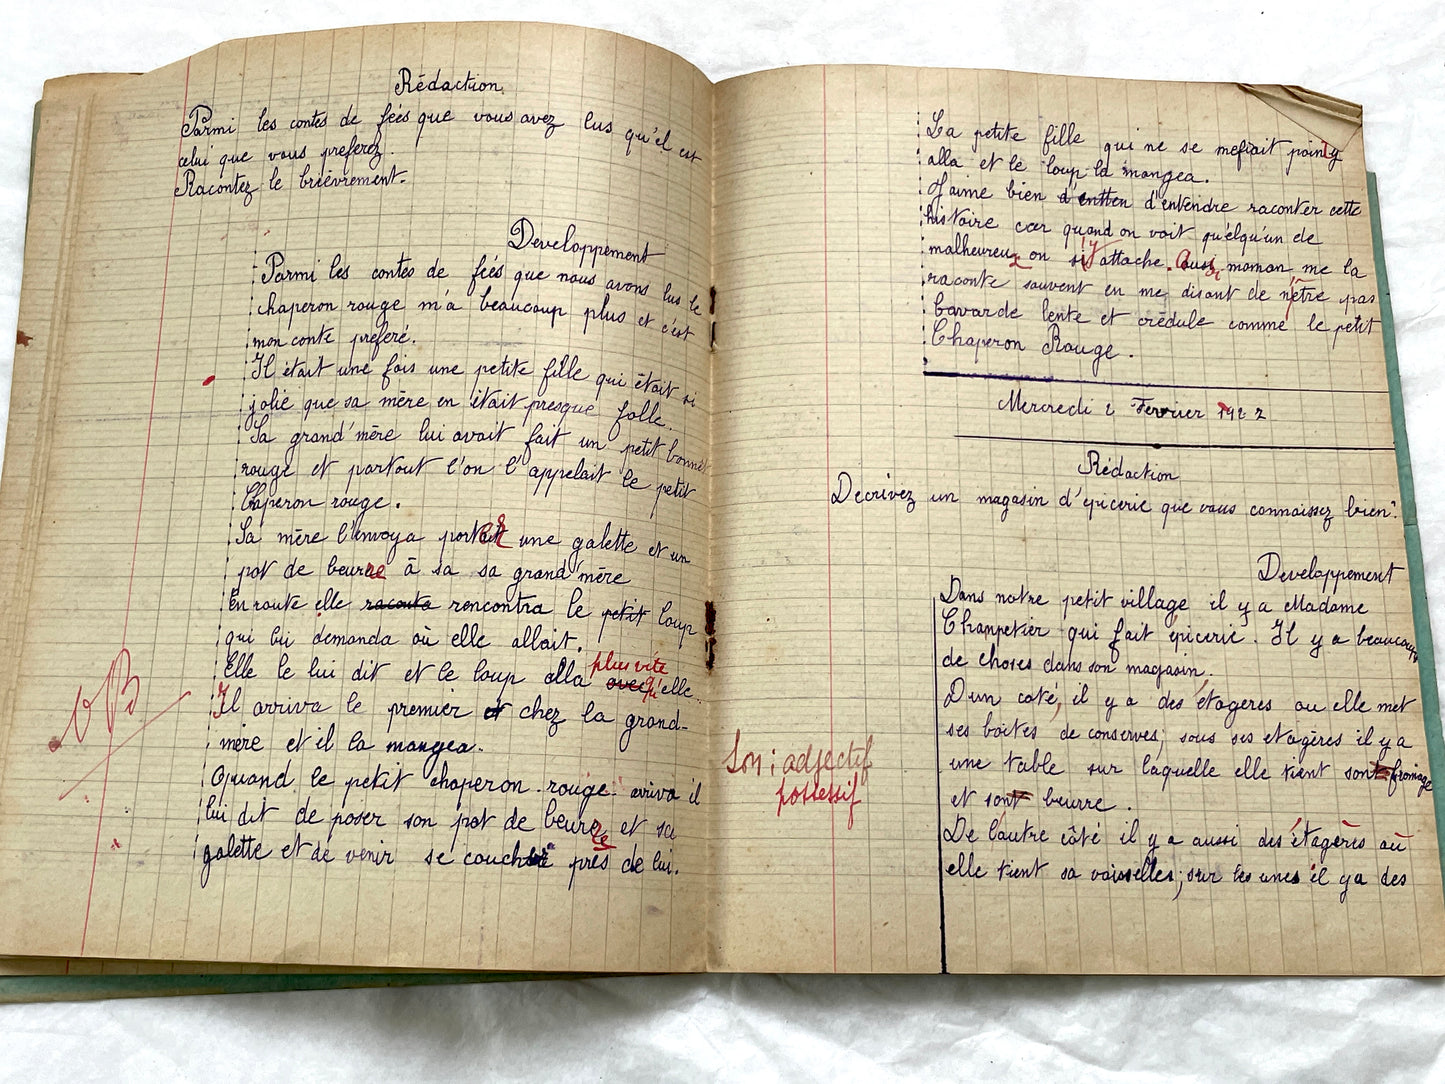 Rédaction
Parmi les contes de fées que vous avez lus qu'il est
celui que vous preferez.
Racontez le brièvrement.
Developpement
Parmi les contes de fées que nous avons lus le
chaperon rouge m'a beaucoup plus et c'est
mon conte preferé.
Il était une fois une petite fille qui était si
jolie que sa mère en était presque folle.
Sa grand'mère lui avait fait un petit bonnet
rouge et partout l'on l'appelait le petit
Chaperon rouge.
Sa mère l'envoya porter une galette et un
pot de beurre à sa sa grand'mère
En route elle raconta rencontra le petit loup
qui lui demanda où elle allait.
Elle le lui dit et le loup alla plus vite
avec qu'elle
Il arriva le premier et chez la grand-
mère et il la mangea.
Quand le petit chaperon rouge arriva il
lui dit de poser son pot de beurre et sa
galette et de venir se coucher près de lui.
VB
La petite fille qui ne se mefiait point y
alla et le loup la mangea.
J'aime bien d'entten d'entendre raconter cette
histoire car quand on voit quelqu'un de
malheureux on s'y attache. Aussi maman me la
raconte souvent en me disant de n'être pas
bavarde lente et crédule comme le petit
Chaperon Rouge.
Mercredi 2 Fevrier 1927
Rédaction
Decrivez un magasin d'epicerie que vous connaissez bien.
Developpement
Dans notre petit village il y a Madame
Champetier qui fait épicerie. Il y a beaucoup
de choses dans son magasin.
D'un coté, il y a des étagères ou elle met
ses boites de conserves; sous ses etagères il y a
une table sur laquelle elle tient sont fromage
et sont beurre.
Son : adjectif
possessif
De l'autre côté il y a aussi des étagères où
elle tient sa vaisselles; sur les unes il y a des